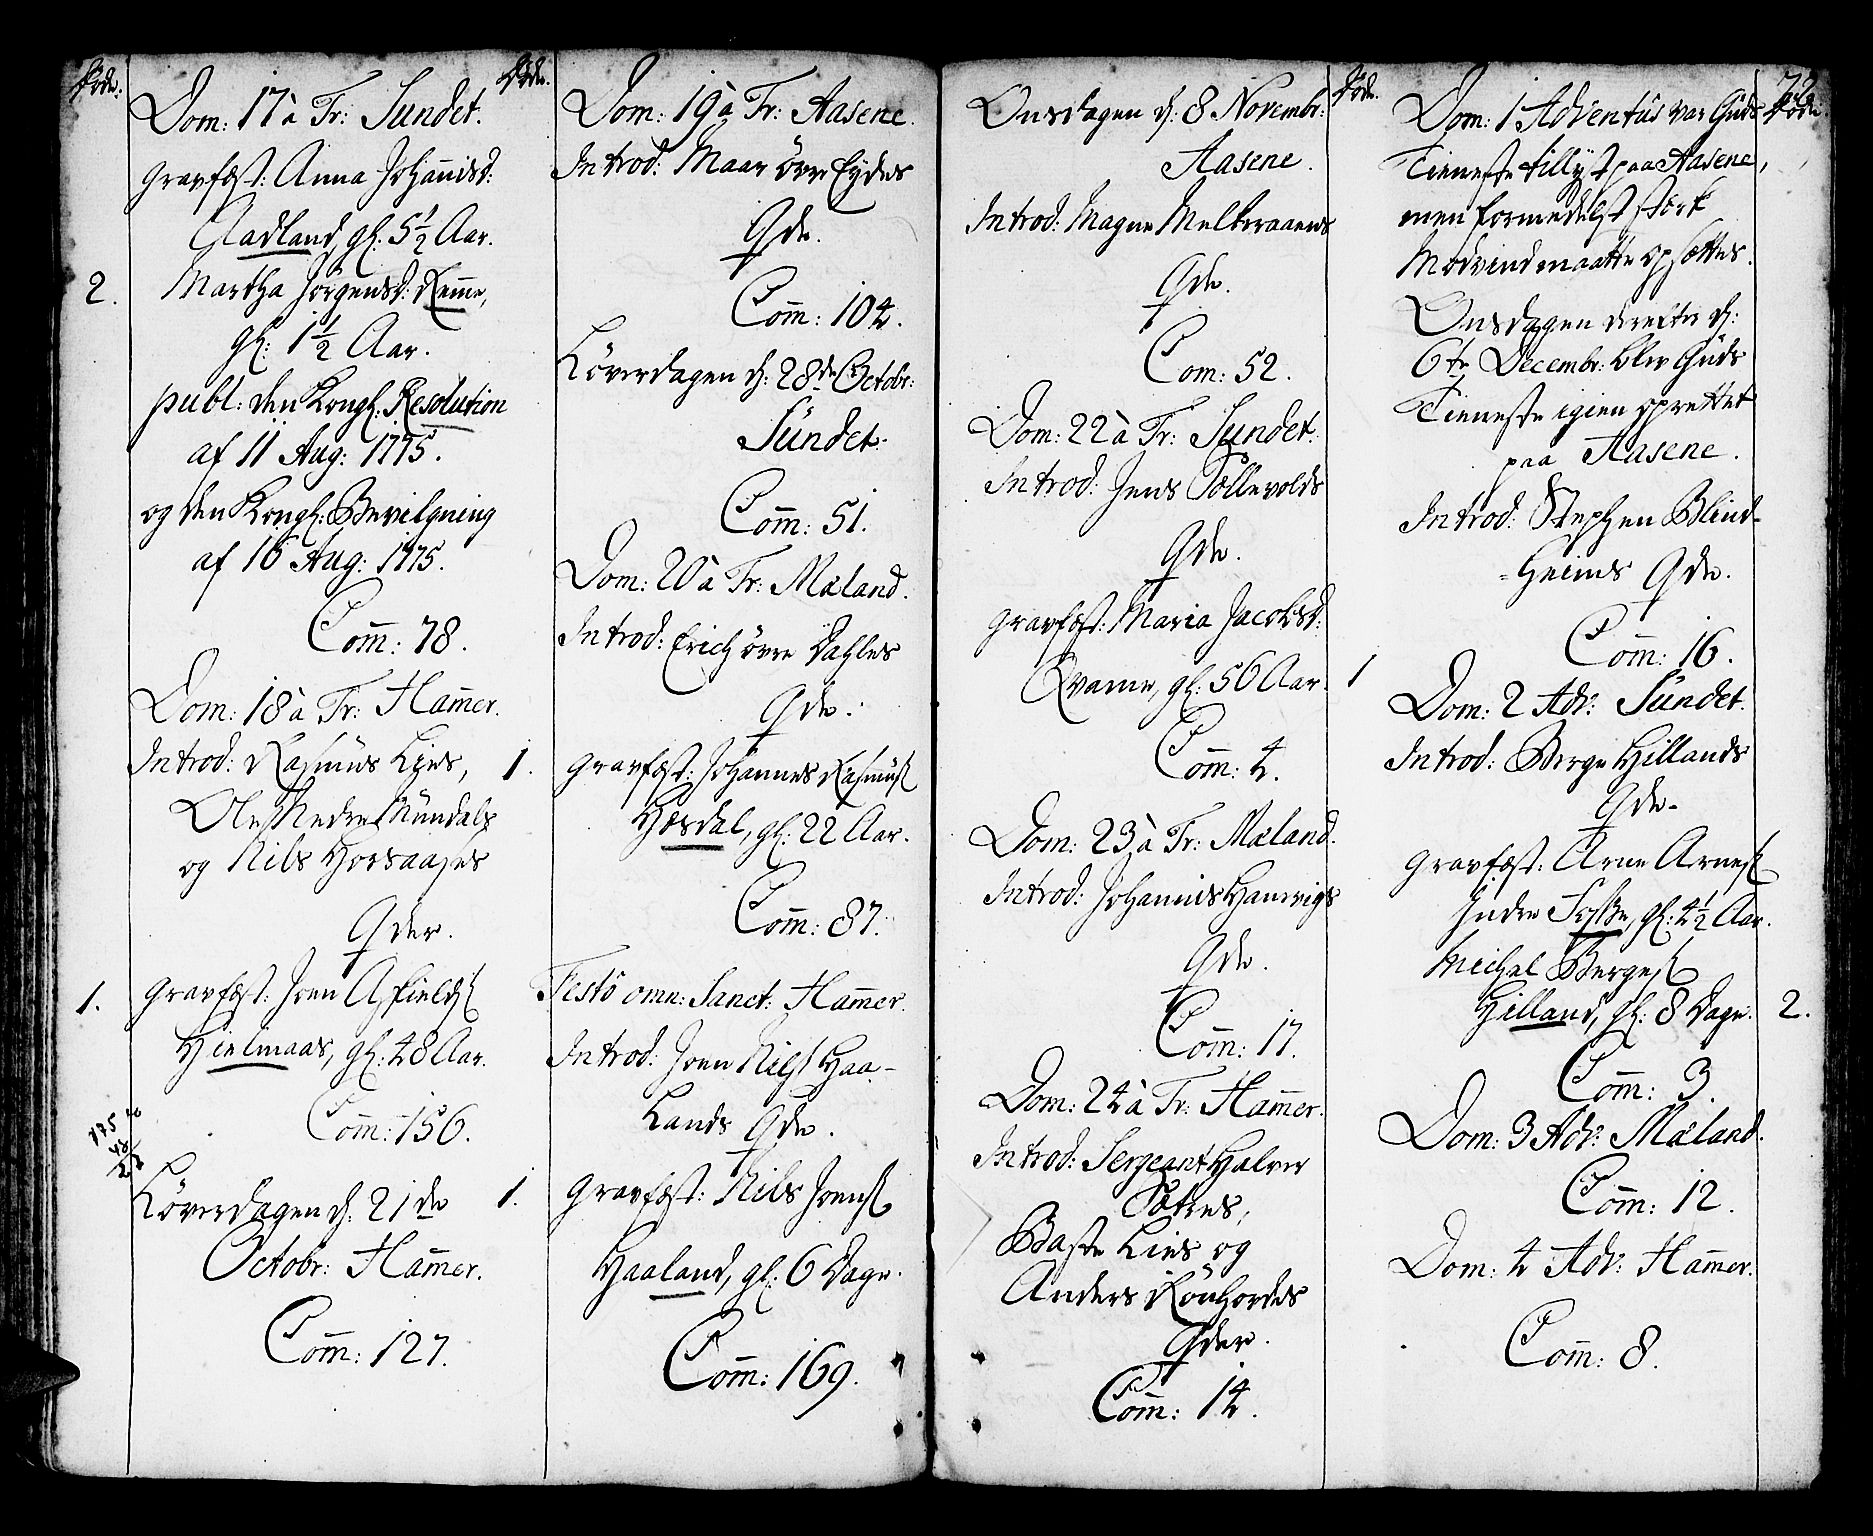 Døde:
Dom: 17 à Tr: Sundet.
Gravfæst: Anna Johannisd:
Aadland, gl: 5½ Aar.
2. Martha Jörgensd: Remme,
gl: 1½ Aar.
publ: den Kongl: Resolution
af 11 Aug: 1775.
og den Kongl: Bevilgning
af 16 Aug: 1775.
Com̄: 78.
Dom: 18 à Tr: Ham̄er.
Introd: Rasmus Lies,
Ole Nedre Mundals
og Nils Horsaases
Qder.
1. Gravfæst: Joen Asfields
Hielmaas, gl: 48 Aar.
Com̄: 156.
Löverdagen d: 21de
Octobr: Ham̄er.
Com̄: 127.
Døde.
Dom: 19 à Tr: Aasene.
Introd: Maar övre Eydes
Qde.
Com̄: 104.
Löverdagen d: 28de Octobr:
Sundet.
Com̄: 51.
Dom: 20 à Tr: Mæland.
Introd: Erich övre Dahles
Qde.
1. Gravfæst: Johannes Rasmus
Hosdal, gl: 22 Aar.
Com̄: 87.
Festo omn: Sanct: Ham̄er.
Introd: Joen Nils Haa-
Lands Qde.
1. Gravfæst: Nils Joens
Haaland, gl: 6 Dage.
Com̄: 169.
Onsdagen d: 8 Novembr:
Aasene.
Introd: Magne Melkeraaens
Qde.
Com: 52.
Dom: 22 à Tr: Sundet.
Introd: Jens Tollevolds
Qde.
Gravfæst: Maria Jacobsd:
Qvamme, gl: 56 Aar.
Com̄: 4.
Dom: 23 à Tr: Mæland.
Introd: Johannis Hanevigs
Qde.
Com̄: 17.
Dom: 24 à Tr: Ham̄er.
Introd: Sergeant Halvor
Sætres,
Baste Lies og
Anders Rönhordes
Qder.
Com̄: 14.
Døde.
1
Dom: 1 Adventus var Guds
Tieneste tillyst paa Aasene,
men formedelst stærk
Modvind maatte opsættes.
Onsdagen derefter d:
6te Decembr: blev Guds
Tieneste igien oprettet
paa Aasene.
Introd: Stephen Blind-
=heims Qde.
Com̄: 16.
Dom: 2 Adv: Sundet.
Introd: Berge Hillands
Qde.
Gravfæst: Arne Arnes
Indre gl: 4½ Aar.
Michel Berges
Hilland, gl: 8 Dage. 2.
Com̄: 3.
Dom: 3 Adv: Mæland.
Com̄: 12.
Dom: 4 Adv: Ham̄er.
Com̄: 8.
Døde.